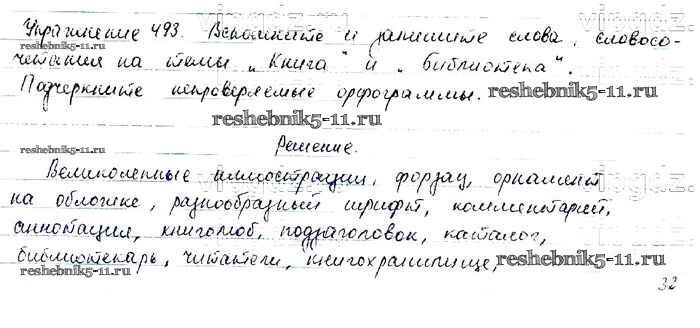 Упражнение 493. Вспомните и запишите слова, словосо-
четания на темы „Книга" и „библиотека".
Подчеркните непроверяемые орфограммы.
Решение.
Великолепные иллюстрации, форзац, орнамент
на обложке, разнообразный шрифт, комментарий,
аннотация, книголюб, подзаголовок, каталог,
библиотекарь, читатели, книгохранилище,
32
reshebnik5-11.ru
reshebnik5-11.ru
reshebnik5-11.ru
reshebnik5-11.ru
reshebnik5-11.ru
reshebnik5-11.ru